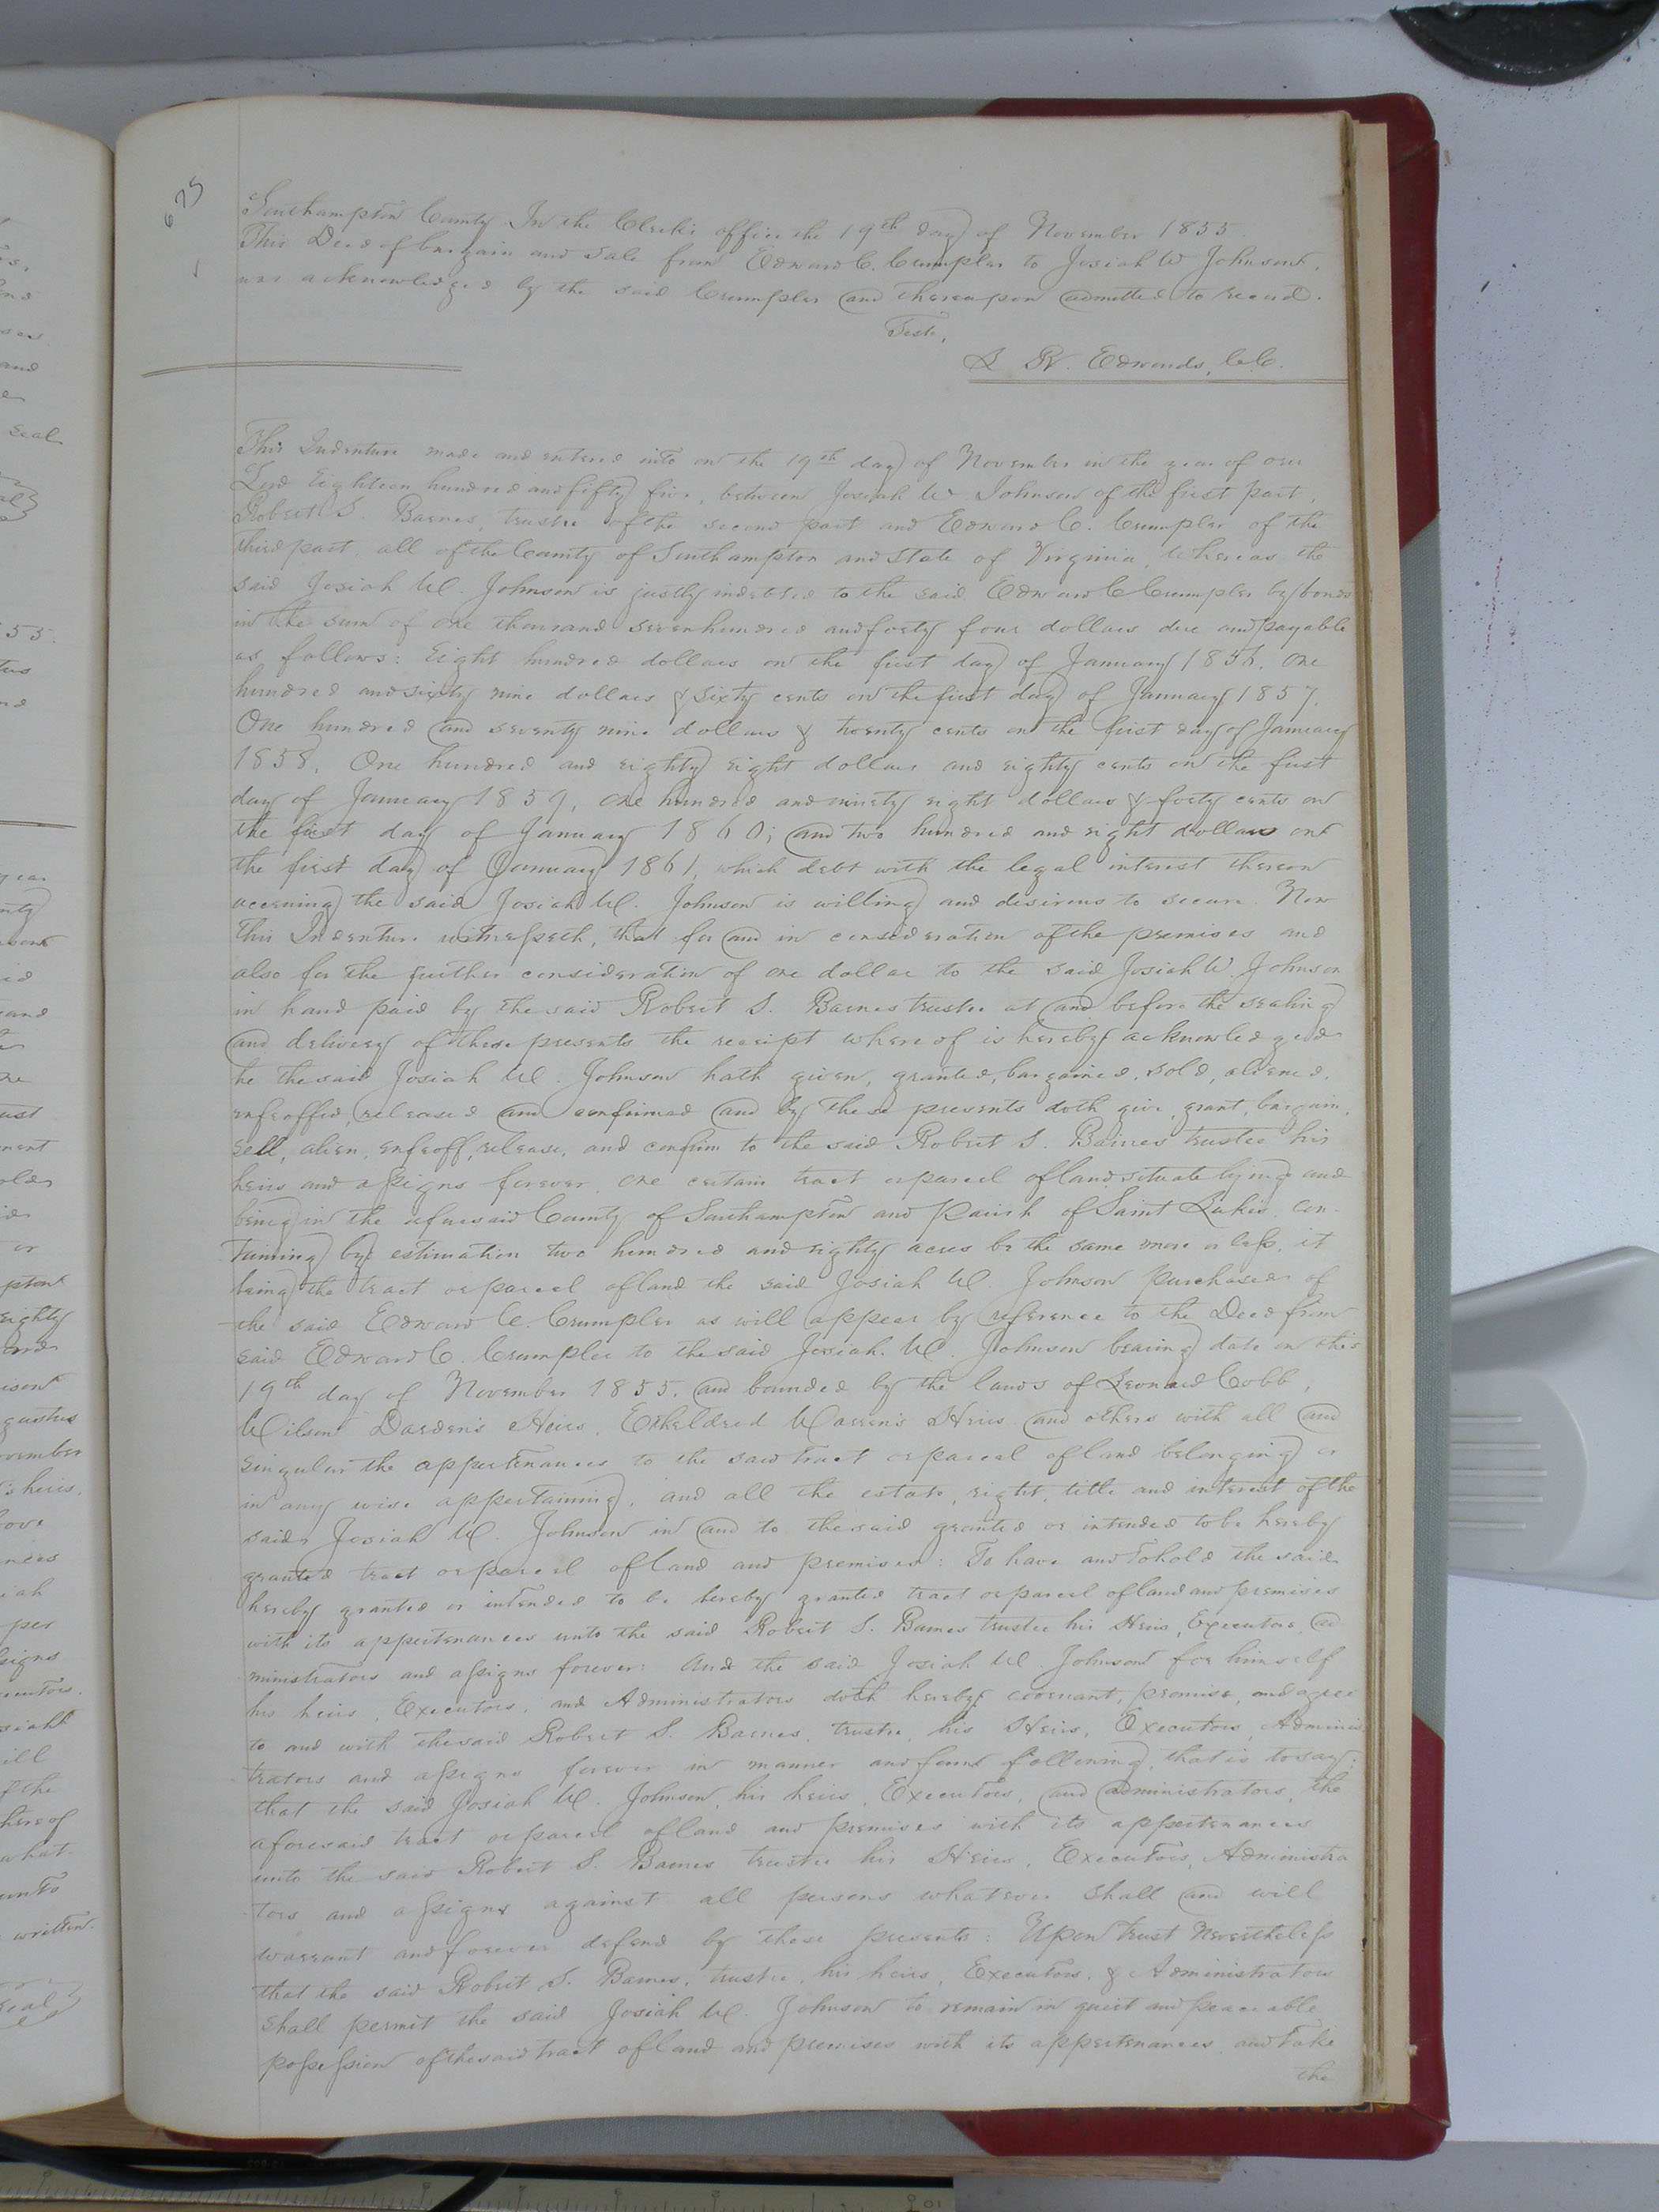 625
Southampton County In the Clerk's office the 19th day of November 1855.
This Deed of bargain and sale from Edward C. Crumpler to Josiah W Johnson,
was acknowledged by the said Crumpler and thereupon admitted to record.
Teste,
L R. Edwards, C.C.
This Indenture made and entered into on the 19th day of November in the year of our
Lord Eighteen hundred and fifty five, between Josiah W. Johnson of the first part,
Robert S. Barnes, trustee of the second part and Edward C. Crumpler of the
third part, all of the County of Southampton and State of Virginia, Whereas the
said Josiah W. Johnson is justly indebted to the said Edward C Crumpler by bonds
in the sum of one thousand seven hundred and forty four dollars due and payable
as follows: Eight hundred dollars on the first day of January 1856, One
hundred and sixty nine dollars & sixty cents on the first day of January 1857,
One hundred and seventy nine dollars & twenty cents on the first day of January
1858, One hundred and eighty eight dollars and eighty cents on the first
day of January 1859, one hundred and ninety eight dollars & forty cents on
the first day of January 1860; and two hundred and eight dollars on
the first day of January 1861, which debt with the legal interest thereon
accruing the said Josiah W. Johnson is willing and desirous to secure. Now
This Indenture witnesseth, that for and in consideration of the premises and
also for the further consideration of one dollar to the said Josiah W. Johnson
in hand paid by the said Robert S. Barnes trustee at and before the sealing
and delivery of these presents the receipt whereof is hereby acknowledged
he the said Josiah W. Johnson hath given, granted, bargained, sold, aliened,
enfeoffed, released and confirmed and by these presents doth give, grant, bargain,
sell, alien, enfeoff, release, and confirm to the said Robert S. Barnes trustee his
heirs and assigns forever, one certain tract or parcel of land situate lying and
being in the aforesaid County of Southampton and Parish of Saint Lukes, con-
taining by estimation two hundred and eighty acres be the same more or less, it
being the tract or parcel of land the said Josiah W. Johnson purchased of
the said Edward C. Crumpler as will appear by reference to the Deed from
said Edward C. Crumpler to the said Josiah. W. Johnson bearing date on this
19th day of November 1855, and bounded by the lands of Leonard Cobb,
Wilson Darden's Heirs, Etheldred Warren's Heirs and others with all and
singular the appertenances to the said tract or parcel of land belonging or
in any wise appertaining, and all the estate, right, title and interest of the
said Josiah W. Johnson in and to the said granted or intended to be hereby
granted tract or parcel of land and premises: To have and to hold the said
hereby granted or intended to be hereby granted tract or parcel of land and premises
with its appertenances unto the said Robert S. Barnes trustee his Heirs, Executors, ad
ministrators and assigns forever: And the said Josiah W. Johnson for himself
his heirs, Executors, and Administrators doth hereby covenant, promise, and agree
to and with the said Robert S. Barnes, trustee, his Heirs, Executors, Adminis
trators and assigns forever in manner and form following, that is to say:
that the said Josiah W. Johnson, his heirs, Executors, and administrators, the
aforesaid tract or parcel of land and premises with its appertenances
unto the said Robert S. Barnes trustee his Heirs, Executors, Administra
tors and assigns against all persons whatever shall and will
warrant and forever defend by these presents: Upon trust Nevertheless
that the said Robert S. Barnes, trustee, his heirs, Executors, & Administrators
shall permit the said Josiah W. Johnson to remain in quiet and peaceable
possession of the said tract of land and premises with its appertenances, and take
the